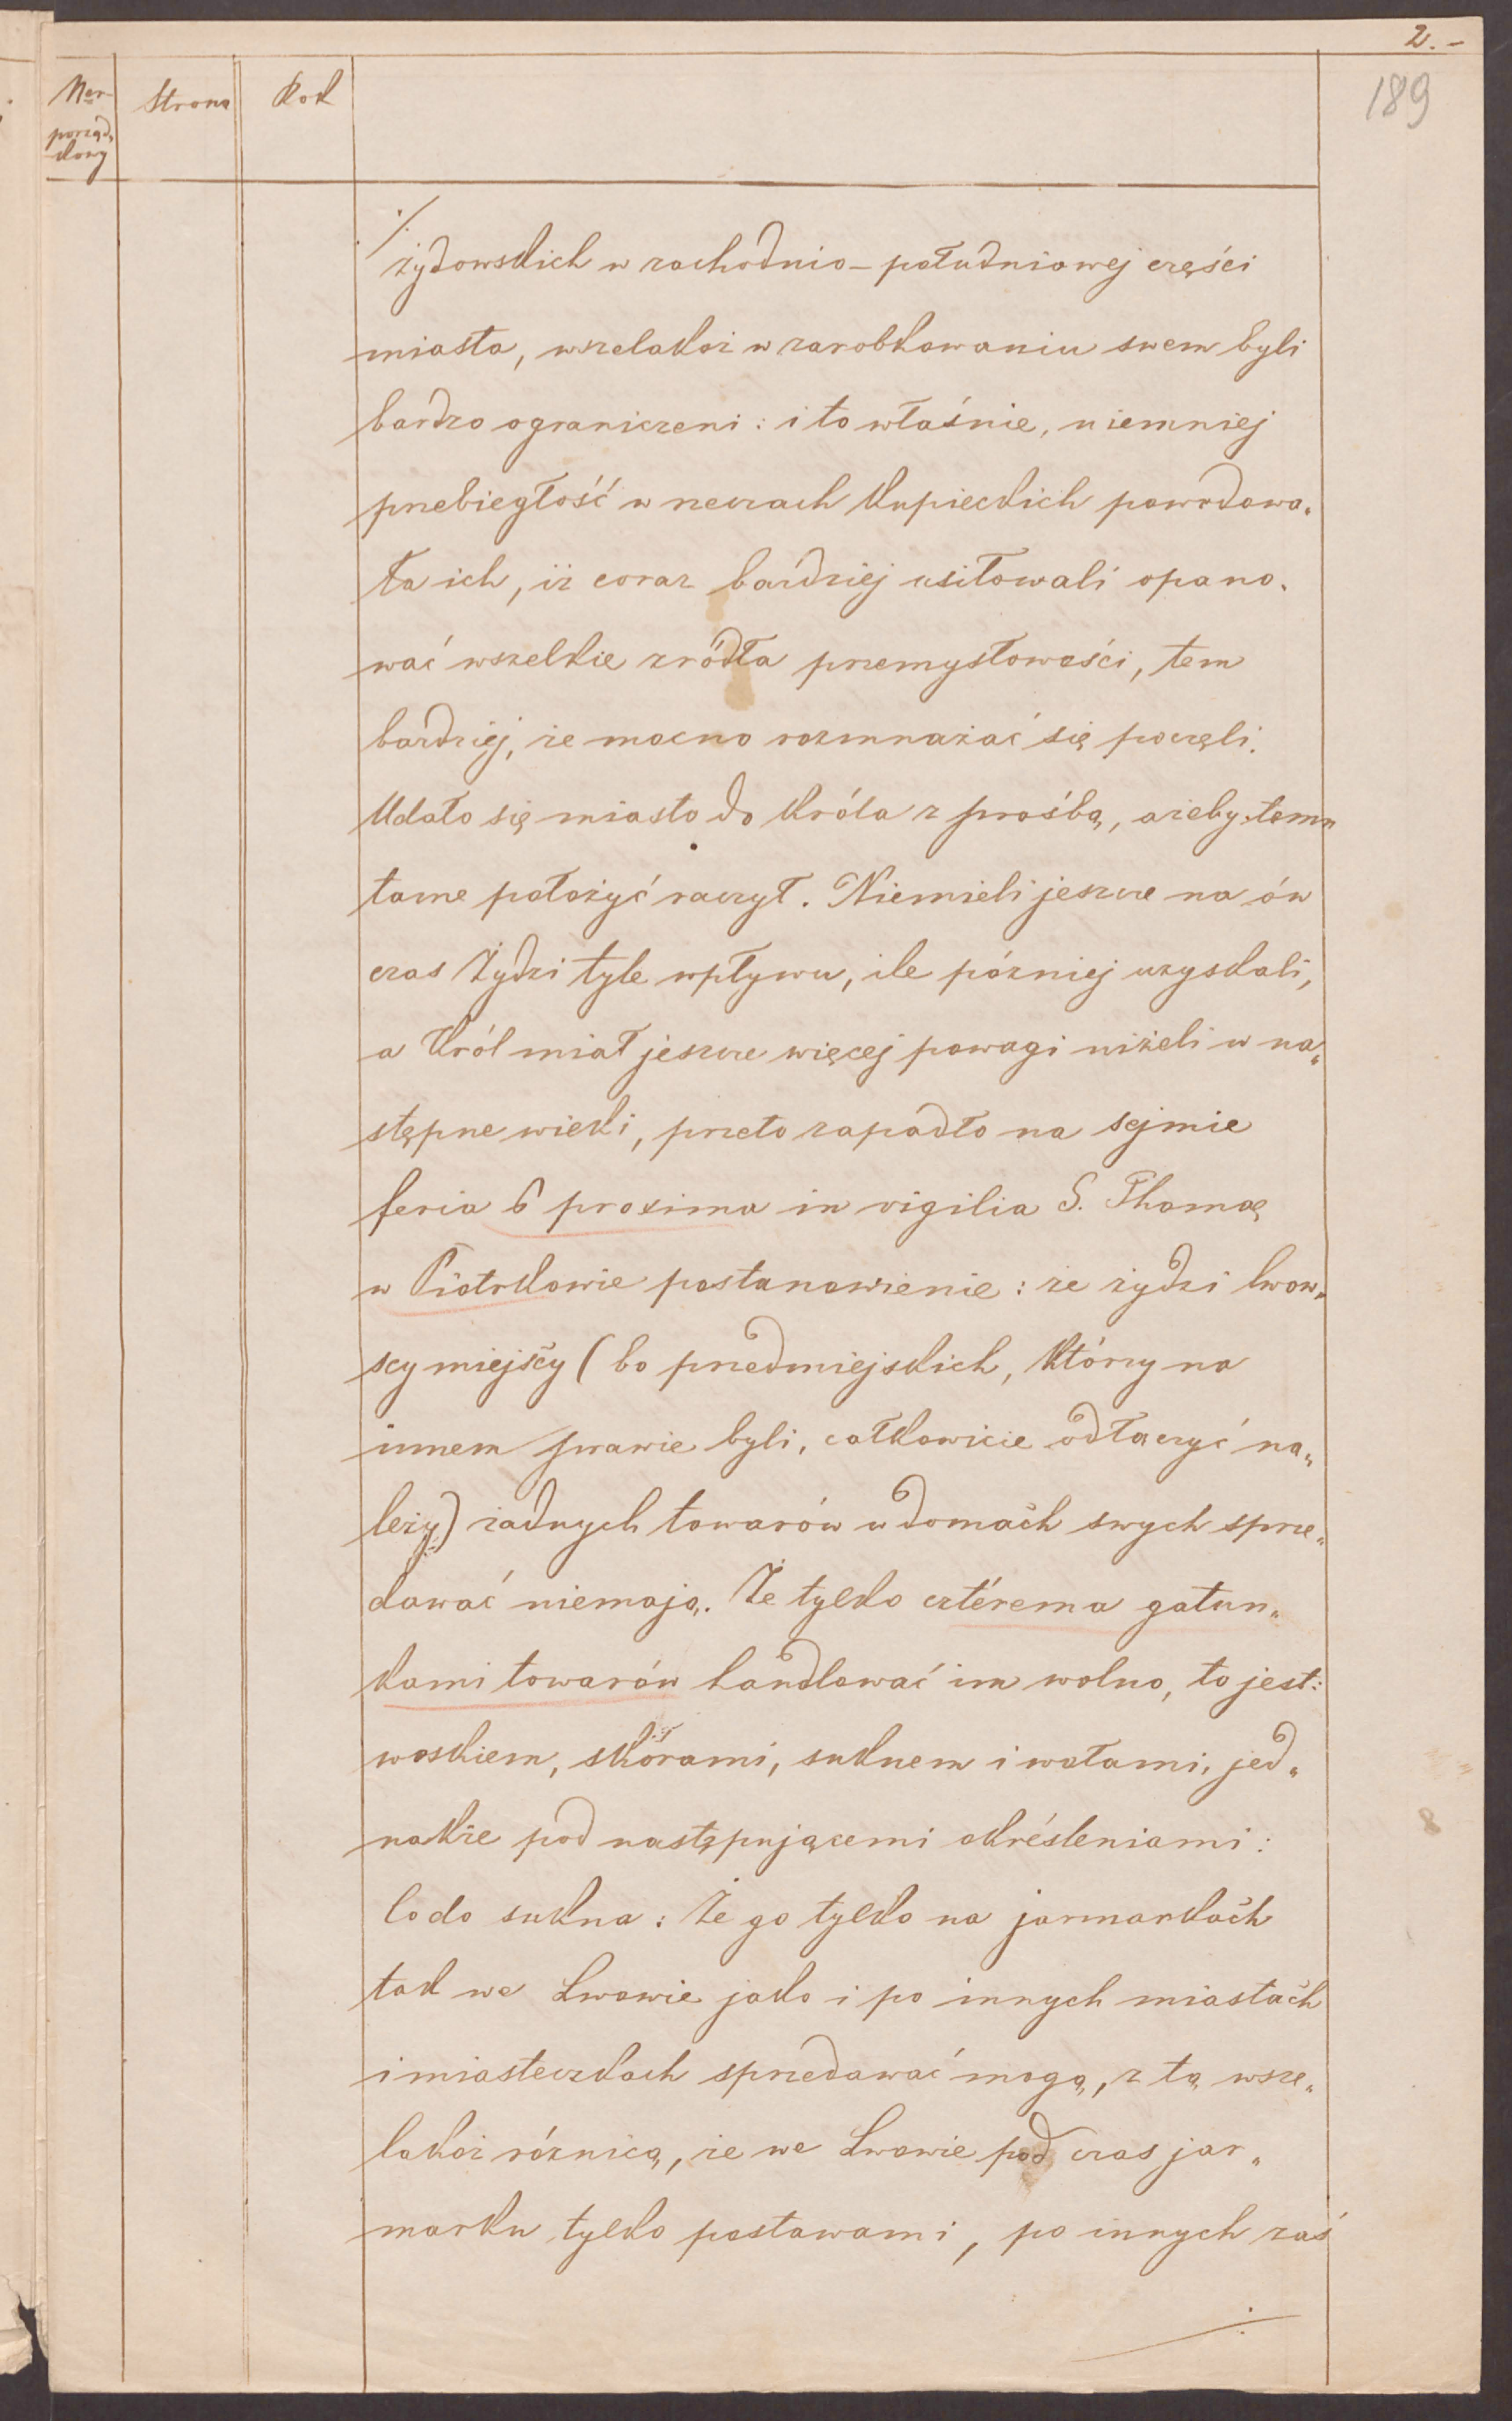 2.-
189
Ner porząd- kowy
Strona
Rok
./.
żydowskich w zachodnio-południowej części
miasta, wszelakoż w zarobkowaniu swem byli
bardzo ograniczeni: i to właśnie, niemniej
przebiegłość w rzeczach kupieckich powodowa-
ła ich, iż coraz bardziej usiłowali opano-
wać wszelkie źródła przemysłowości, tem
bardziej, że mocno rozmnażać się poczęli.
Udało się miasto do króla z prośbą, ażeby temu
tamę położyć raczył. Niemieli jeszcze na ów
czas Żydzi tyle wpływu, ile później uzyskali,
a Król miał jeszcze więcej powagi niżeli w na-
stępne wieki, przeto zapadło na sejmie
feria 6 proxima in vigilia S. Thomae
w Piotrkowie postanowienie: że żydzi lwow-
scy miejscy (bo przedmiejskich, którzy na
innem prawie byli, całkowicie odłączyć na-
leży) żadnych towarów w domach swych sprze-
dawać niemają. Że tylko cztérema gatun-
kami towarów handlować im wolno, to jest:
woskiem, skórami, suknem i wołami, jed-
nakże pod następującemi okréśleniami:
Co do sukna: Że go tylko na jarmarkach
tak we Lwowie jako i po innych miastach
i miasteczkach sprzedawać mogą, z tą wsze-
lakoż różnicą, że we Lwowie pod czas jar-
marku tylko postawami, po innych zaś
./.